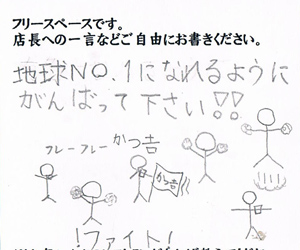 フリースペースです。
店長への一言などご自由にお書きください。
地球NO.1になれるように
がんばって下さい!!
フレーフレーかつ吉
かつ吉
!ファイト!